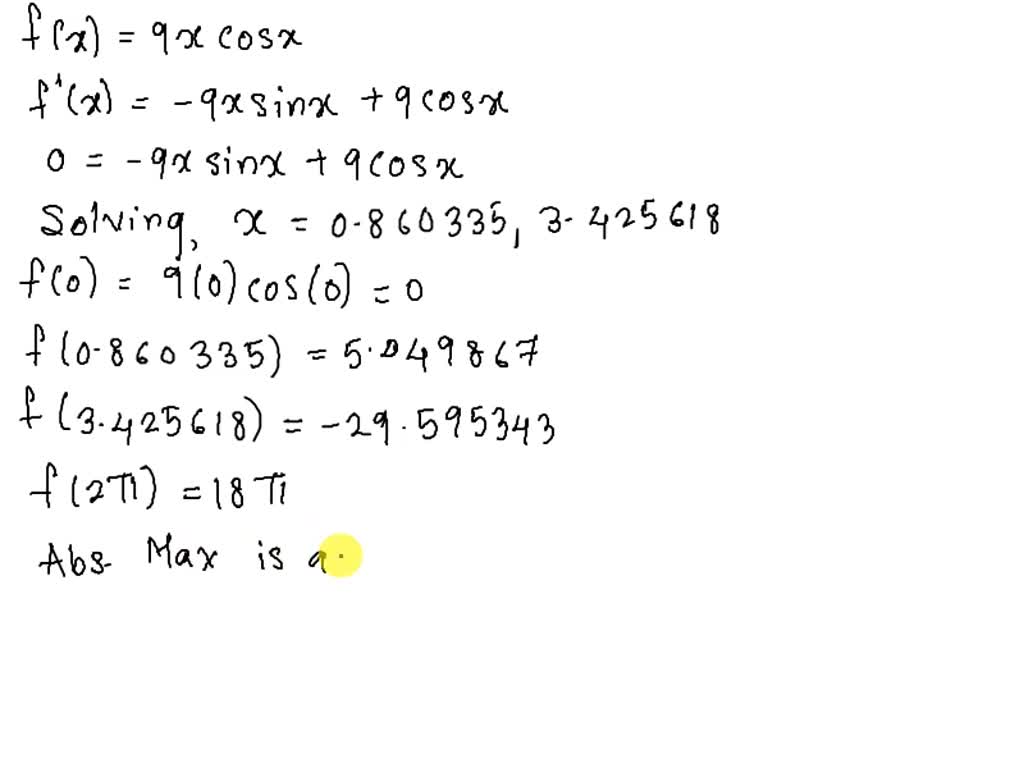 f(x) = 9x cosx
f'(x) = -9x sinx + 9 cosx
0 = -9x sinx + 9 cosx
Solving, x = 0.860335, 3.425618
f(0) = 9(0) cos(0) = 0
f(0.860335) = 5.049867
f(3.425618) = -29.595343
f(2π) = 18π
Abs. Max is a